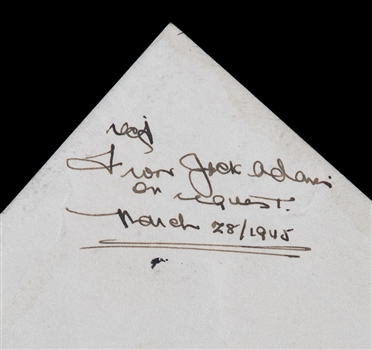 recd
From Jack Adams
on request.
March 28/1945